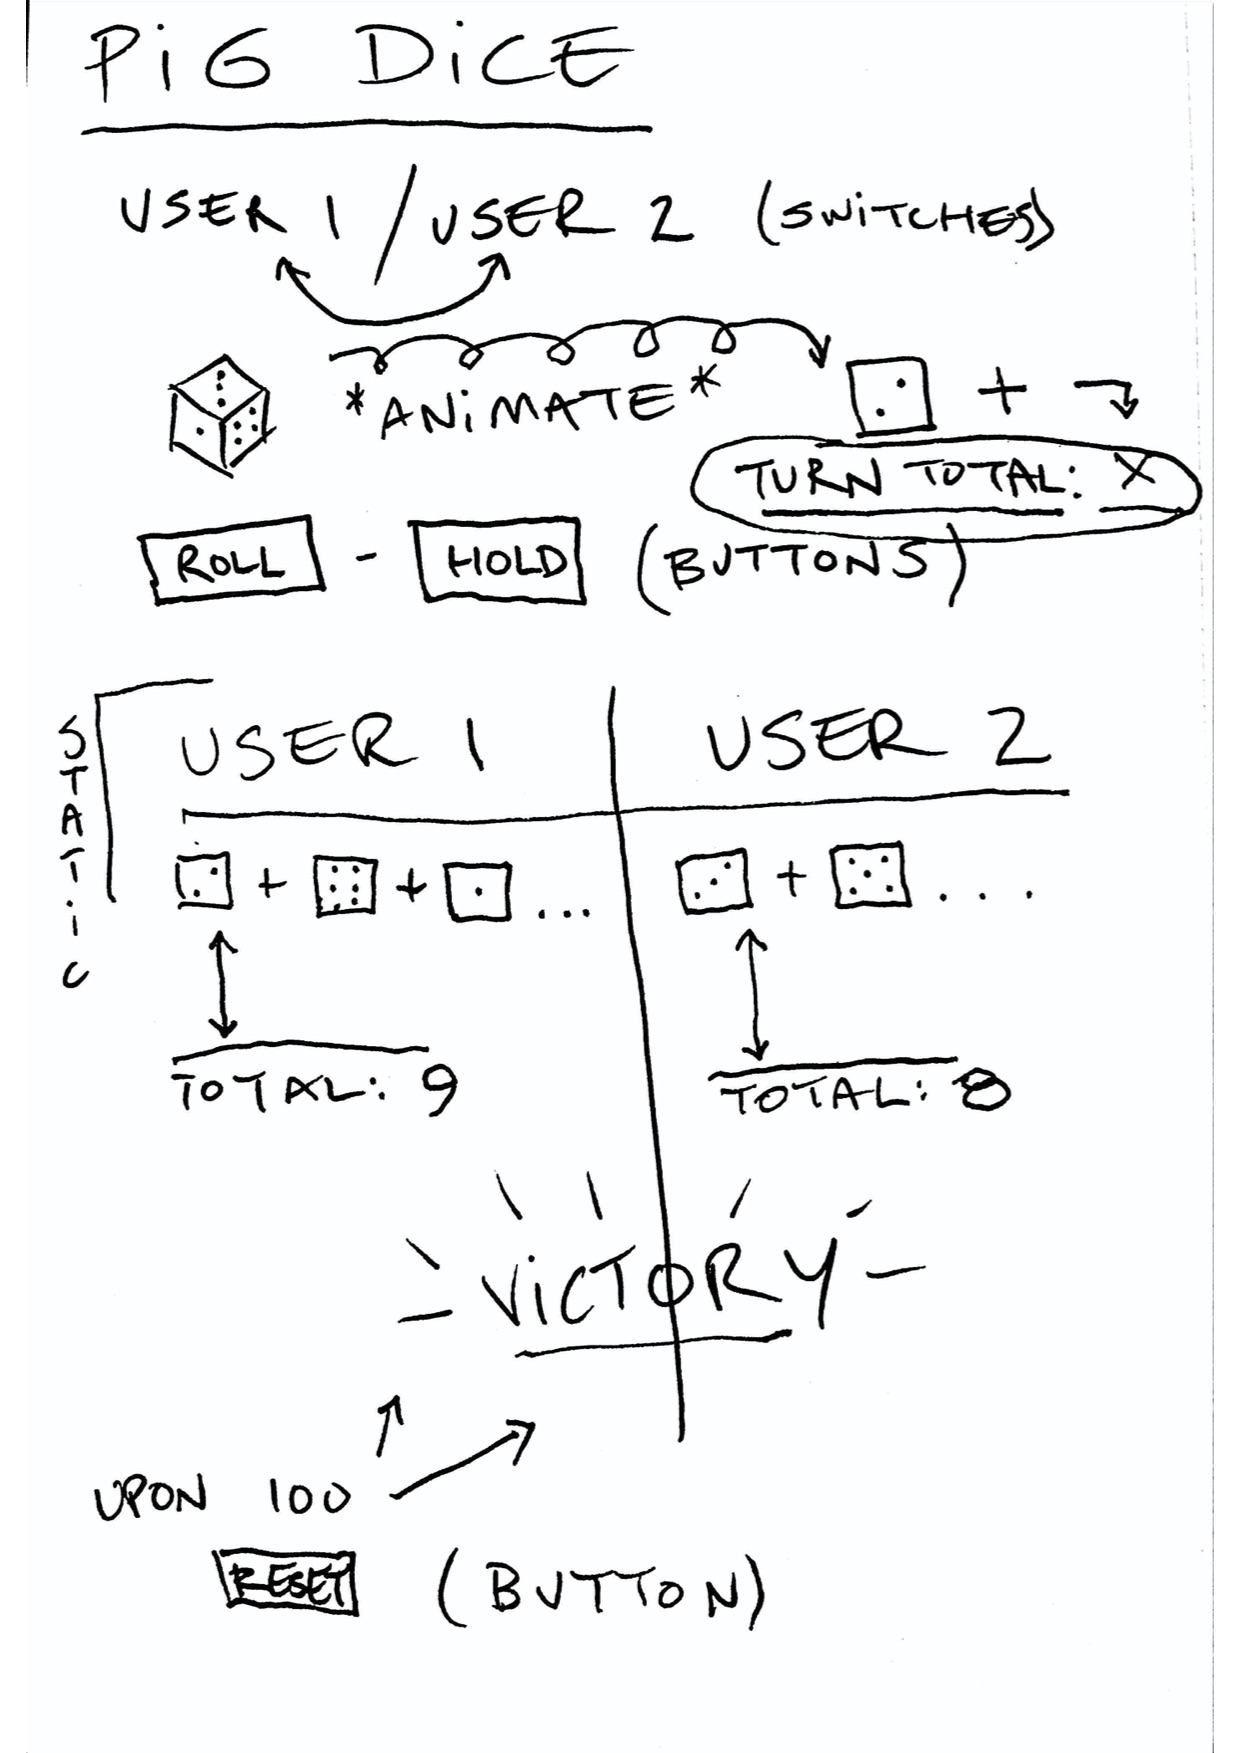 PiG DiCE
USER 1 / USER 2 (SWiTCHES)
*ANiMATE*
+
TURN TOTAL: X
ROLL - HOLD (BUTTONS)
STATiC
USER 1
USER 2
+ + ...
+ ....
TOTAL: 9
TOTAL: 8
ViCTORY
UPON 100
RESET (BUTTON)